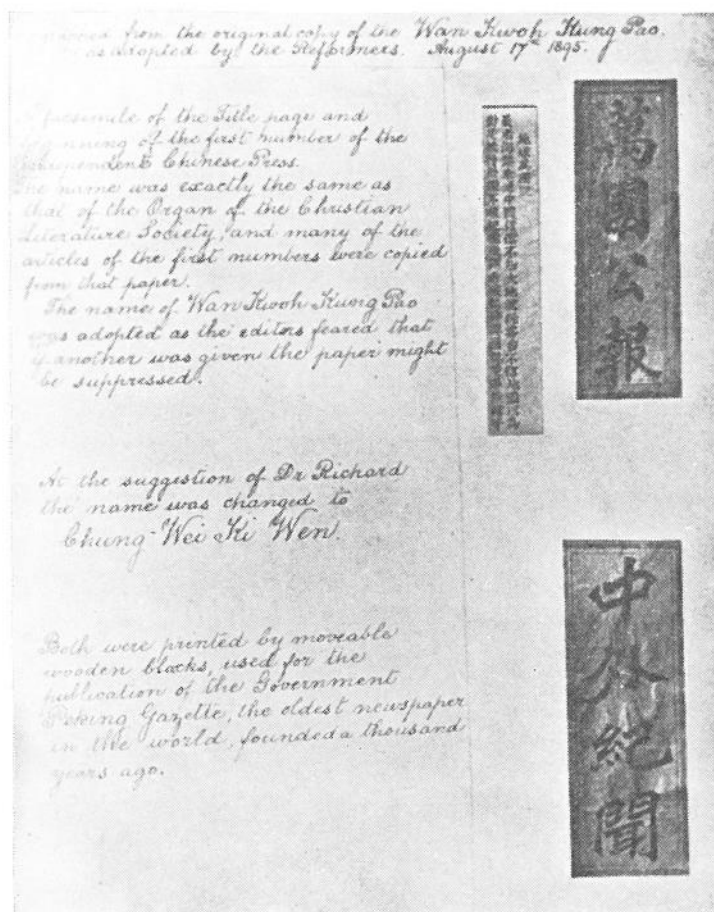 from the original copy of the Wan Kwoh Kung Pao.
as adopted by the Reformers. August 17th 1895.
A facsimile of the Title page and
beginning of the first number of the
Independent Chinese Press.
The name was exactly the same as
that of the Organ of the Christian
Literature Society, and many of the
articles of the first numbers were copied
from that paper.
The name of Wan Kwoh Kung Pao
was adopted as the editors feared that
if another was given the paper might
be suppressed.
萬國公報
At the suggestion of Dr Richard
the name was changed to
Chung-Wei Ki Wen.
Both were printed by moveable
wooden blocks, used for the
publication of the Government
Peking Gazette, the oldest newspaper
in the world, founded a thousand
years ago.
中外紀聞